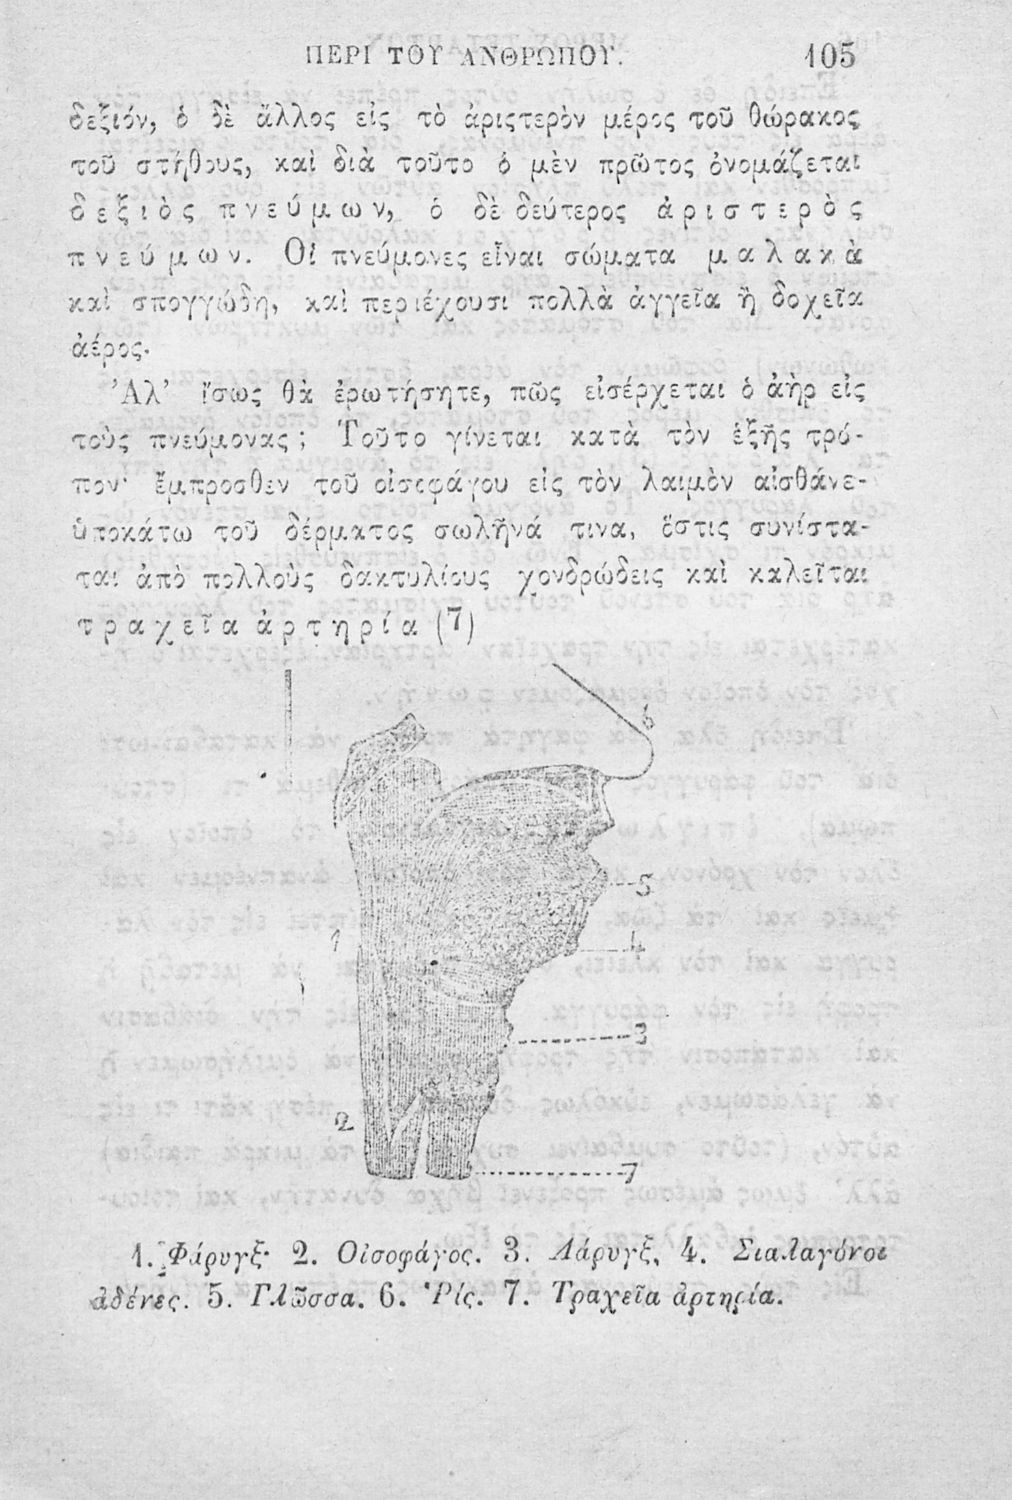 ΠΕΡΙ ΤΟΥ ΑΝΘΡΩΠΟΥ. 105
δεξιόν, ὁ δὲ ἄλλος εἰς τὸ ἀριστερὸν μέρος τοῦ θώρακος
τοῦ στήθους, καὶ διὰ τοῦτο ὁ μὲν πρῶτος ὀνομάζεται
δεξιὸς πνεύμων, ὁ δὲ δεύτερος ἀριστερὸς
πνεύμων. Οἱ πνεύμονες εἶναι σώματα μαλακὰ
καὶ σπογγώδη, καὶ περιέχουσι πολλὰ ἀγγεῖα ἢ δοχεῖα
ἀέρος.
Ἀλ’ ἴσως θὰ ἐρωτήσητε, πῶς εἰσέρχεται ὁ ἀὴρ εἰς
τοὺς πνεύμονας; Τοῦτο γίνεται κατὰ τὸν ἑξῆς τρό-
πον· ἔμπροσθεν τοῦ οἰσοφάγου εἰς τὸν λαιμὸν αἰσθάνε-
ὑποκάτω τοῦ δέρματος σωλῆνά τινα, ὅστις συνίστα-
ται ἀπὸ πολλοὺς δακτυλίους χονδρώδεις καὶ καλεῖται
τραχεῖα ἀρτηρία (7)
6
5
1 4
3
2
7
1. Φάρυγξ· 2. Οἰσοφάγος. 3. Λάρυγξ, 4. Σιαλαγόνοι
ἀδένες. 5. Γλῶσσα. 6. Ῥίς. 7. Τραχεῖα ἀρτηρία.